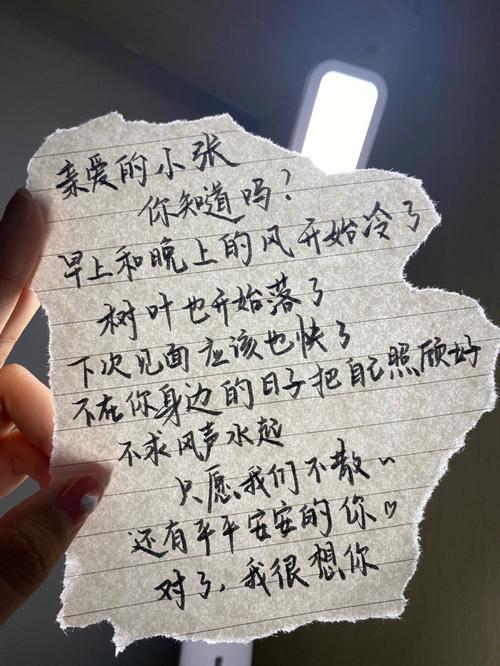 亲爱的小张
你知道吗?
早上和晚上的风开始冷了
树叶也开始落了
下次见面应该也快了
不在你身边的日子把自己照顾好
不求风声水起
只愿我们不散~
还有平平安安的你♡
对了,我很想你